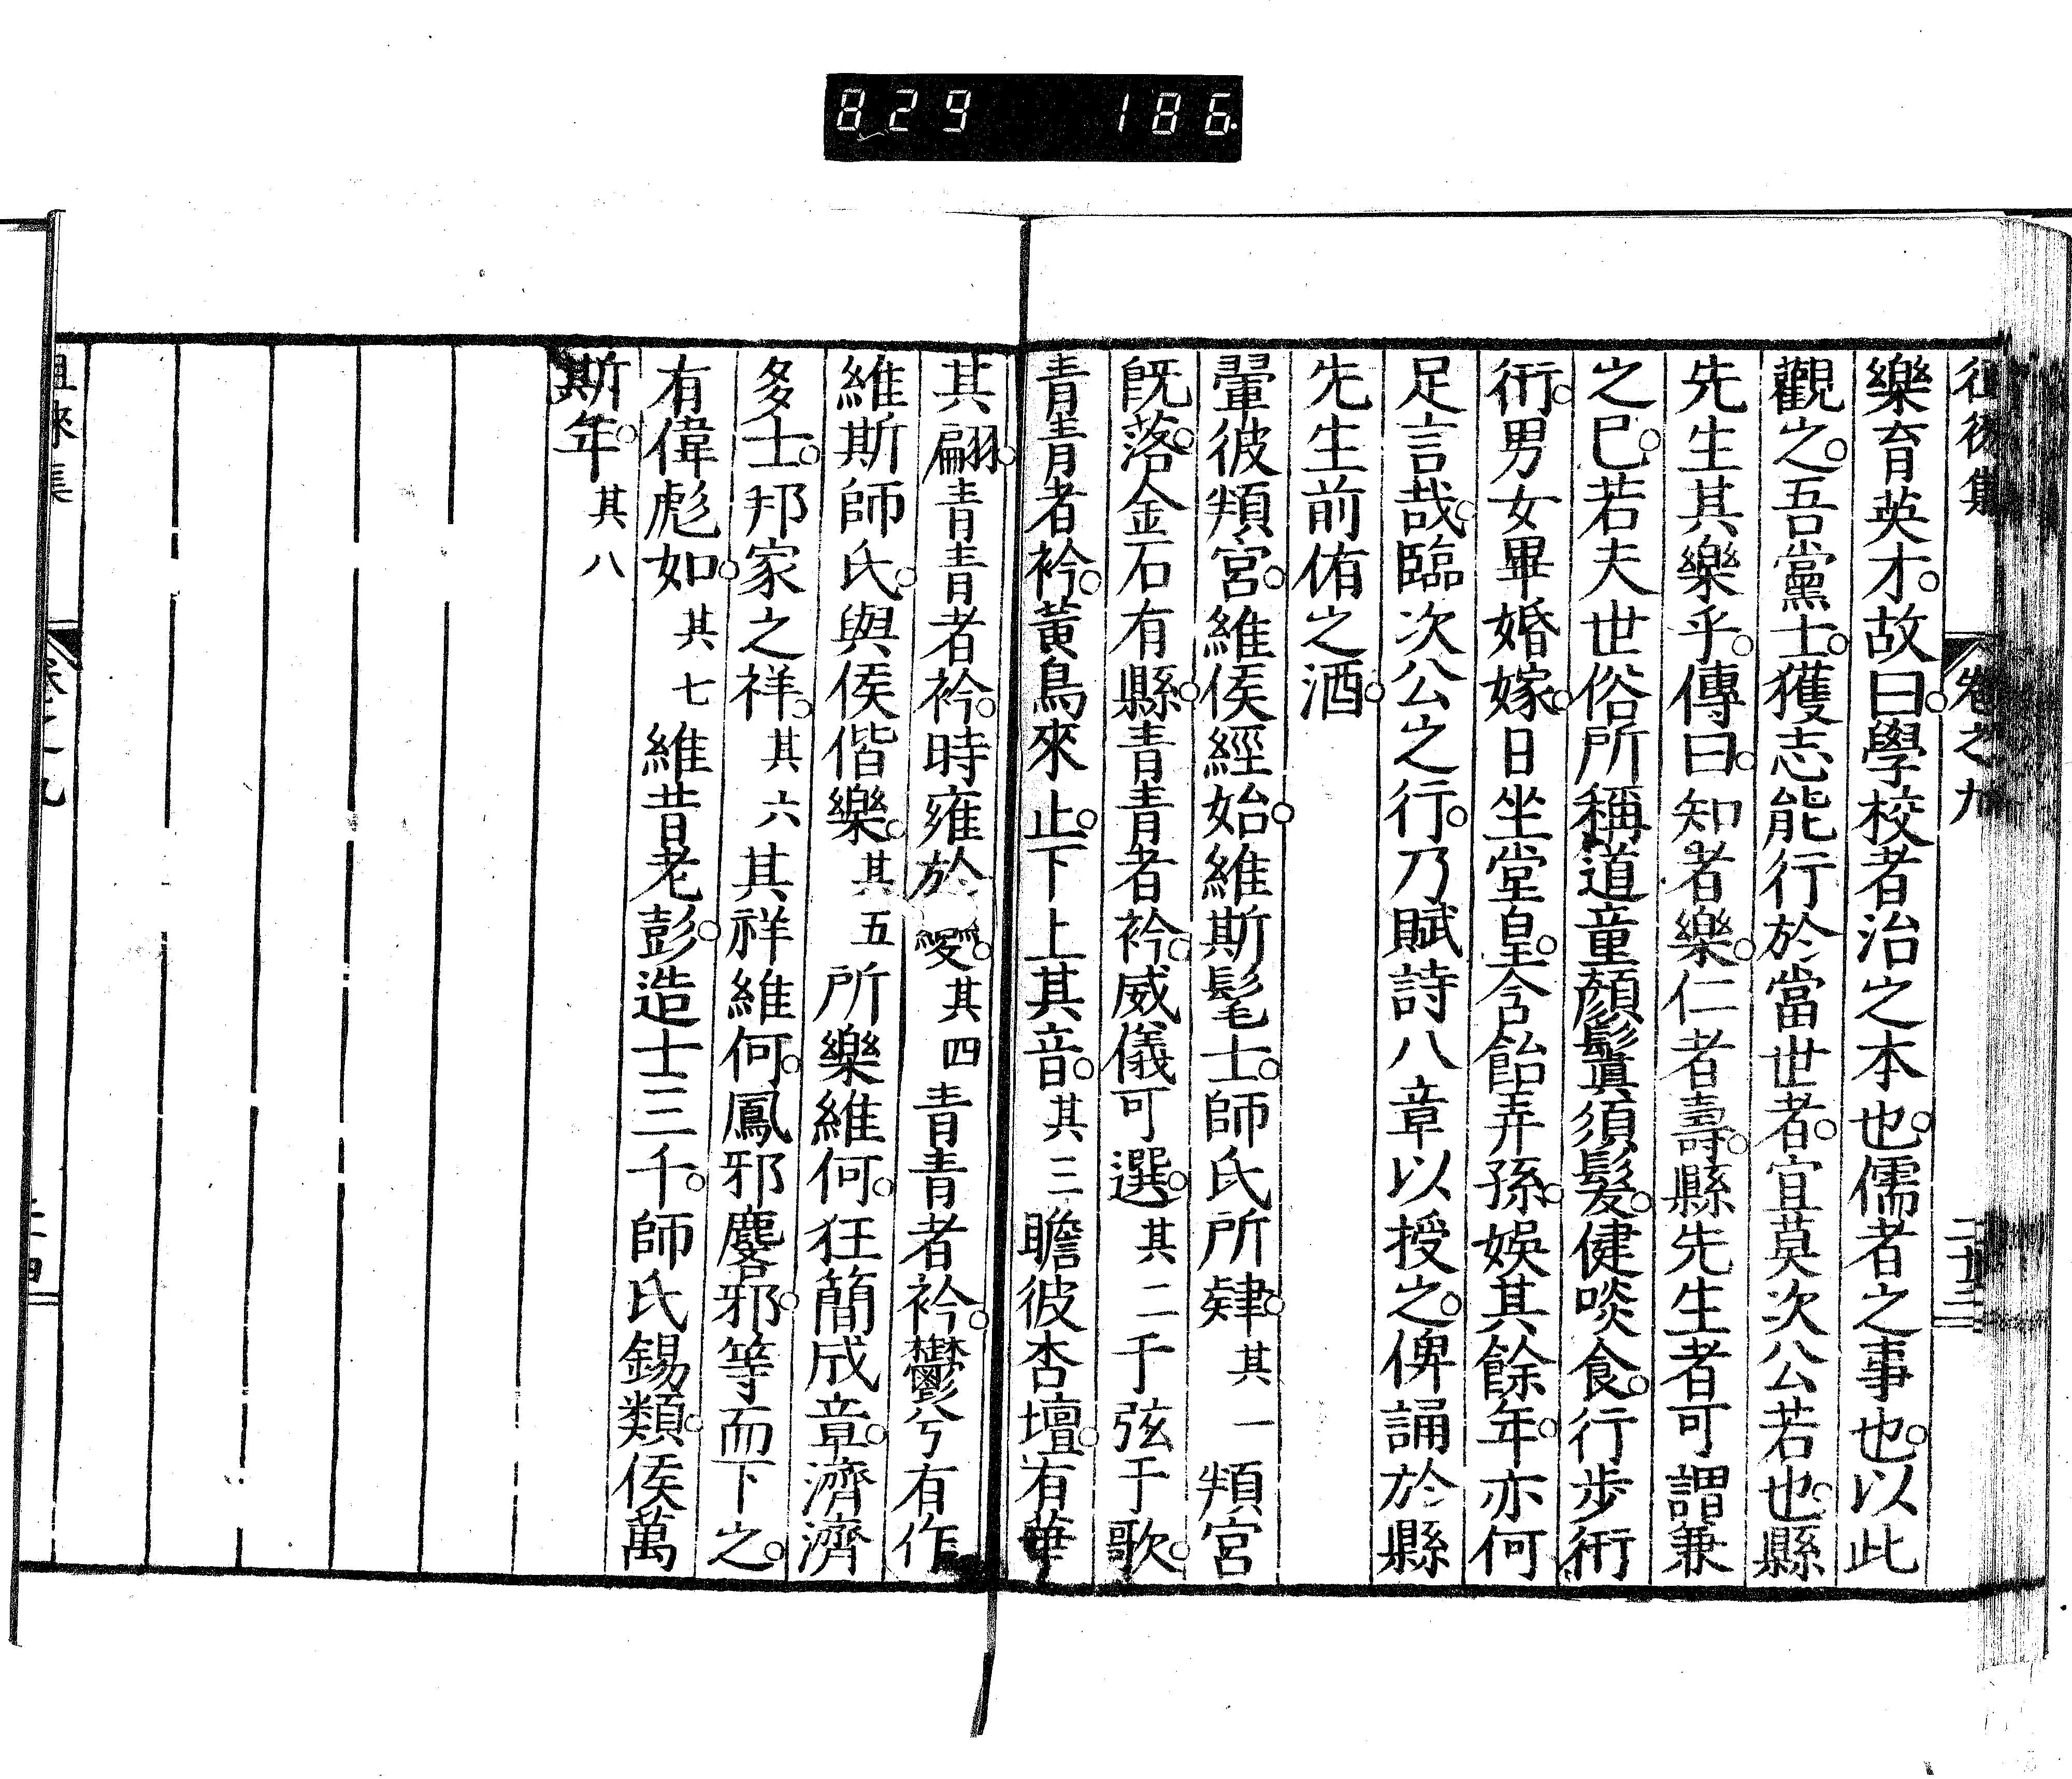 829 186
卷之九
樂育英才。故曰。學校者治之本也。儒者之事也。以此
觀之。吾黨士。獲志能行於當世者。宜莫次公若也。縣
先生其樂乎。傳曰。知者樂。仁者壽。縣先生者可謂兼
之已。若夫世俗所稱道童顏鬒須髮。健啖食。行步衎
衎。男女畢婚嫁。日坐堂皇。含飴弄孫。娛其餘年。亦何
足言哉。臨次公之行。乃賦詩八章以授之。俾誦於縣
先生前侑之酒。
翬彼頖宮。維侯經始。維斯髦士。師氏所肄。其一 頖宮
既落。金石有縣。青青者衿。威儀可選。其二 于弦于歌。
青青者衿。黃鳥來止。下上其音。其三 瞻彼杏壇。有華
其翩。青青者衿。時雍於變。其四 青青者衿。鬱兮有作
維斯師氏。與侯偕樂。其五 所樂維何。狂簡成章。濟濟
多士。邦家之祥。其六 其祥維何。鳳邪麐邪。等而下之。
有偉彪如。其七 維昔老彭。造士三千。師氏錫類。侯萬
斯年。其八